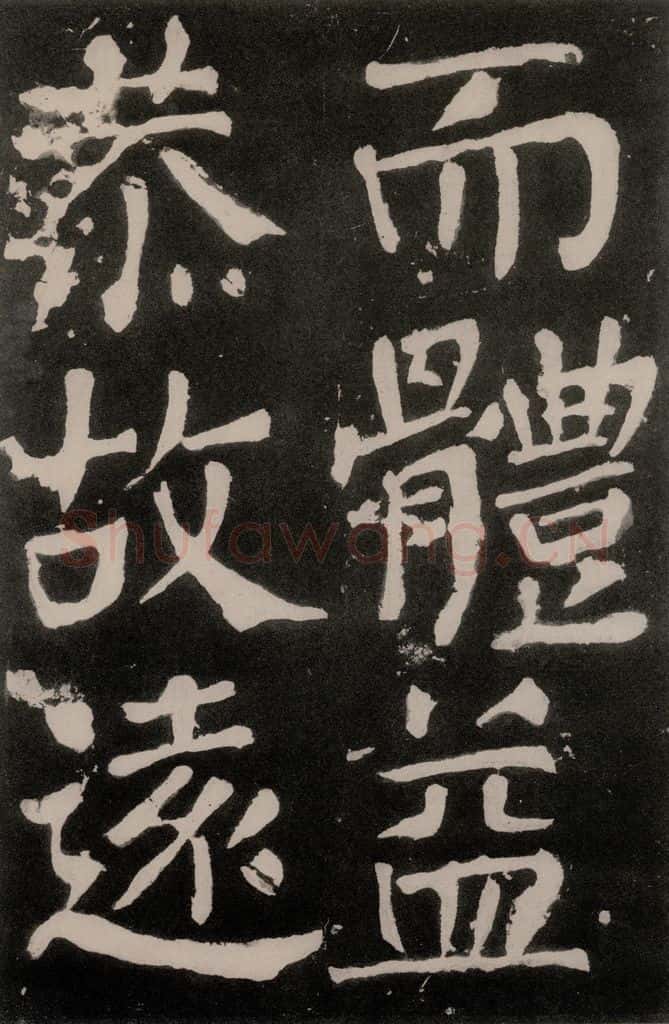 而體益
恭故遠
Shufawang.CN